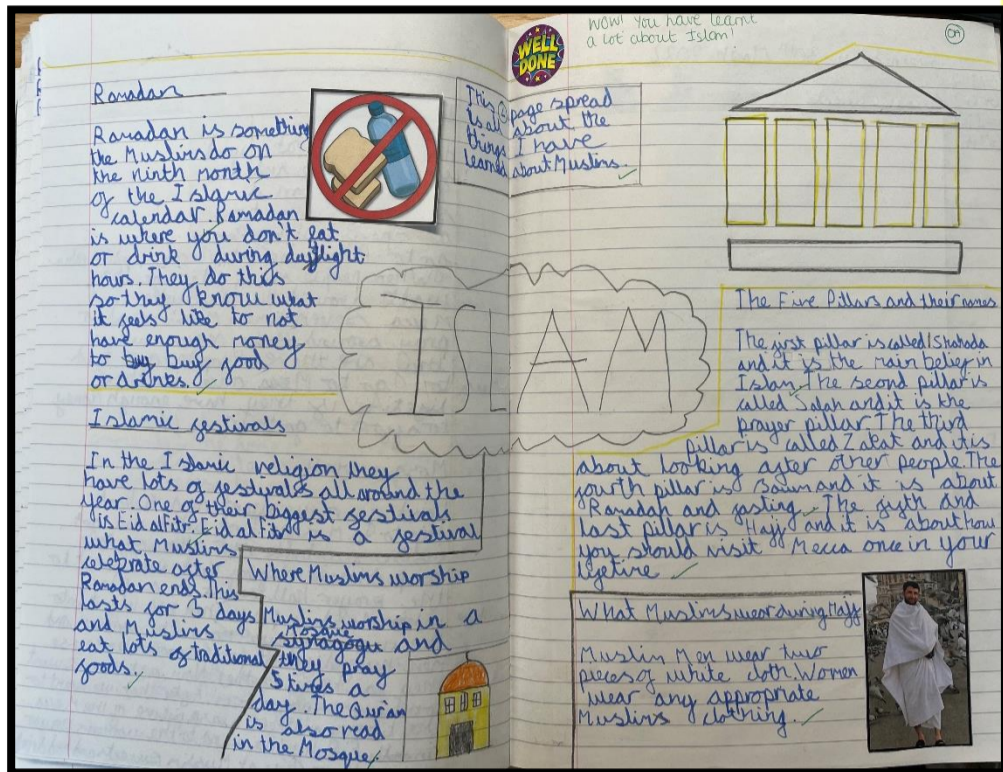 WOW! You have learnt
a lot about Islam!
WELL
DONE
This 2 page spread
is all about the
things I have
learned about Muslims.
Ramadan
Ramadan is something
the Muslims do on
the ninth month
of the Islamic
calendar. Ramadan
is where you don't eat
or drink during daylight
hours. They do this
so they know what
it feels like to not
have enough money
to buy food
or drinks.
Islamic festivals
In the Islamic religion they
have lots of festivals all around the
year. One of their biggest festivals
is Eid al Fitr. Eid al Fitr is a festival
what Muslims
celebrate after
Ramadan ends. This
lasts for 3 days
and Muslims
eat lots of traditional
foods.
ISLAM
Where Muslims worship
Muslims worship in a
Mosque
synagogu and
they pray
5 times a
day. The Qur'an
is also read
in the Mosque.
The Five Pillars and their names
The first pillar is called Shahada
and it is the main belief in
Islam. The second pillar is
called Salah and it is the
prayer pillar. The third
pillar is called Zakat and it is
about looking after other people. The
fourth pillar is Sawm and it is about
Ramadan and fasting. The fifth and
last pillar is Hajj and it is about how
you should visit Mecca once in your
lifetime
What Muslims wear during Hajj
Muslim Men wear two
pieces of white cloth. Women
wear any appropriate
Muslims clothing.